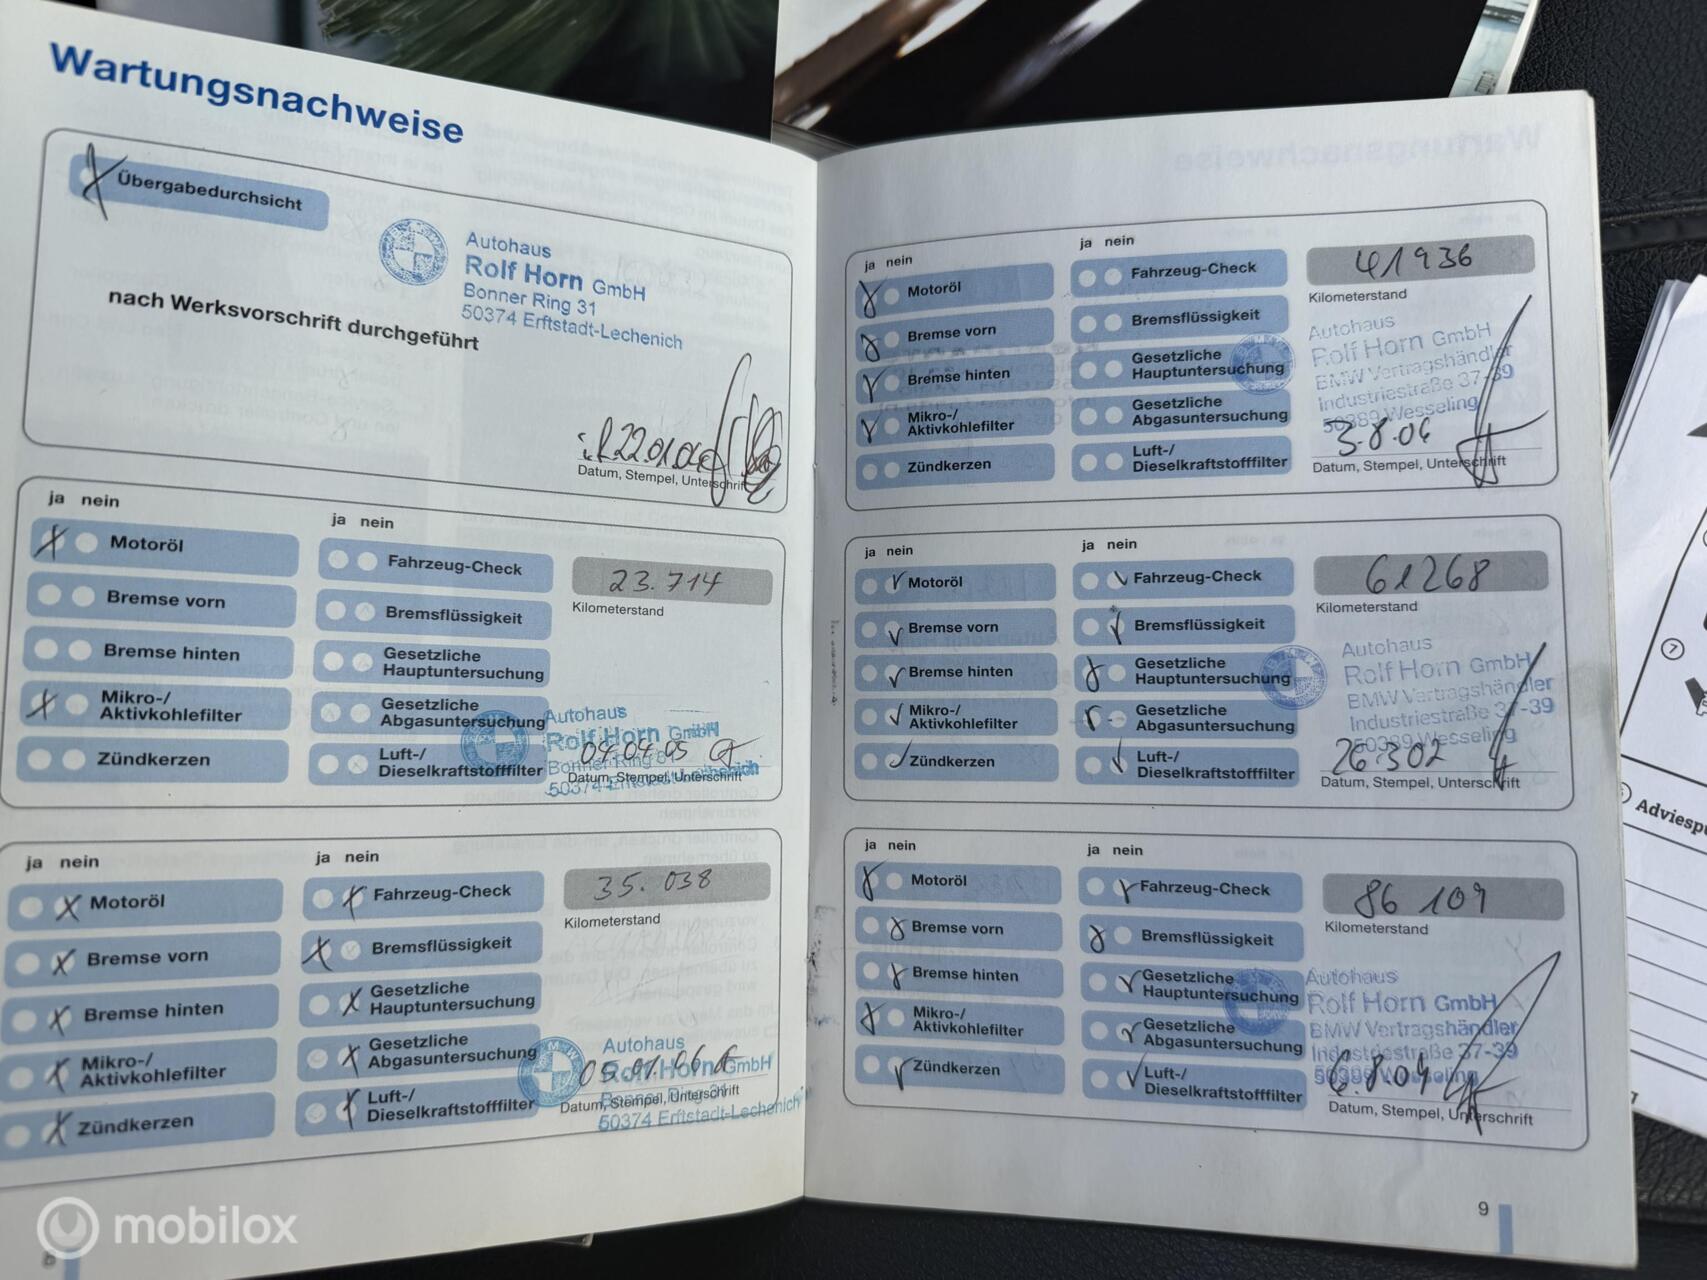 Wartungsnachweise
Übergabedurchsicht
Autohaus
Rolf Horn GmbH
Bonner Ring 31
50374 Erftstadt-Lechenich
nach Werksvorschrift durchgeführt
Datum, Stempel, Unterschrift
ja nein
ja nein
Motoröl
Fahrzeug-Check
23.714
Kilometerstand
Bremse vorn
Bremsflüssigkeit
Bremse hinten
Gesetzliche
Hauptuntersuchung
Mikro-/
Aktivkohlefilter
Gesetzliche
Abgasuntersuchung
Autohaus
Rolf Horn GmbH
04.04.05
Zündkerzen
Luft-/
Dieselkraftstofffilter
Datum, Stempel, Unterschrift
50374
ja nein
ja nein
Motoröl
Fahrzeug-Check
35.038
Kilometerstand
Bremse vorn
Bremsflüssigkeit
Bremse hinten
Gesetzliche
Hauptuntersuchung
Mikro-/
Aktivkohlefilter
Gesetzliche
Abgasuntersuchung
Autohaus
Rolf Horn GmbH
Zündkerzen
Luft-/
Dieselkraftstofffilter
Datum, Stempel, Unterschrift
50374 Erftstadt-Lechenich
ja nein
ja nein
Motoröl
Fahrzeug-Check
41936
Kilometerstand
Bremse vorn
Bremsflüssigkeit
Autohaus
Rolf Horn GmbH
BMW Vertragshändler
Industriestraße 37-39
50389 Wesseling
Bremse hinten
Gesetzliche
Hauptuntersuchung
Mikro-/
Aktivkohlefilter
Gesetzliche
Abgasuntersuchung
3.8.06
Zündkerzen
Luft-/
Dieselkraftstofffilter
Datum, Stempel, Unterschrift
ja nein
ja nein
Motoröl
Fahrzeug-Check
61268
Kilometerstand
Bremse vorn
Bremsflüssigkeit
Autohaus
Rolf Horn GmbH
BMW Vertragshändler
Industriestraße 37-39
50389 Wesseling
Bremse hinten
Gesetzliche
Hauptuntersuchung
Mikro-/
Aktivkohlefilter
Gesetzliche
Abgasuntersuchung
Zündkerzen
Luft-/
Dieselkraftstofffilter
Datum, Stempel, Unterschrift
ja nein
ja nein
Motoröl
Fahrzeug-Check
86 109
Kilometerstand
Bremse vorn
Bremsflüssigkeit
Autohaus
Rolf Horn GmbH
BMW Vertragshändler
Industriestraße 37-39
50389 Wesseling
Bremse hinten
Gesetzliche
Hauptuntersuchung
Mikro-/
Aktivkohlefilter
Gesetzliche
Abgasuntersuchung
Zündkerzen
Luft-/
Dieselkraftstofffilter
Datum, Stempel, Unterschrift
9
7
mobilox